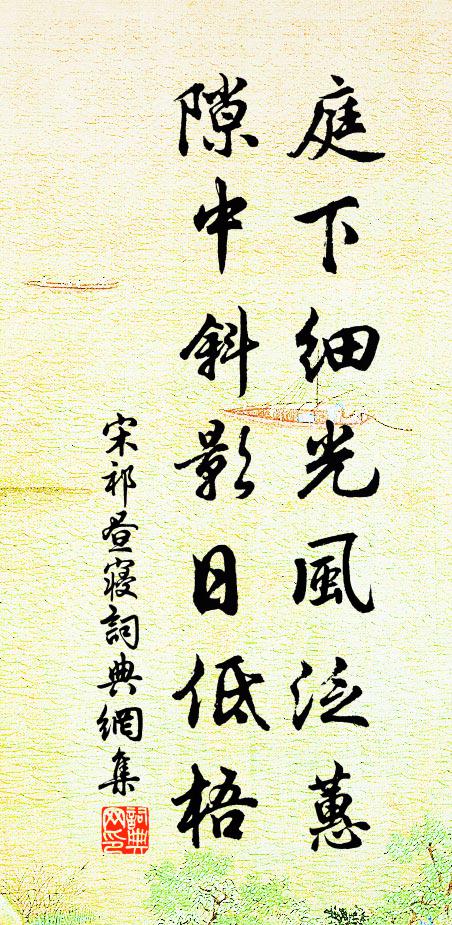 庭下細光風泛蕙
隙中斜影日低梧
宋祁晝寢詞典網集
詞典网印